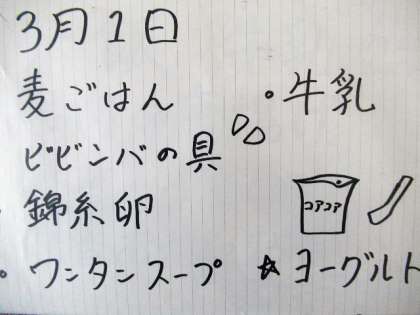 3月1日
麦ごはん
・牛乳
ビビンバの具
錦糸卵
・ワンタンスープ
☆ヨーグルト